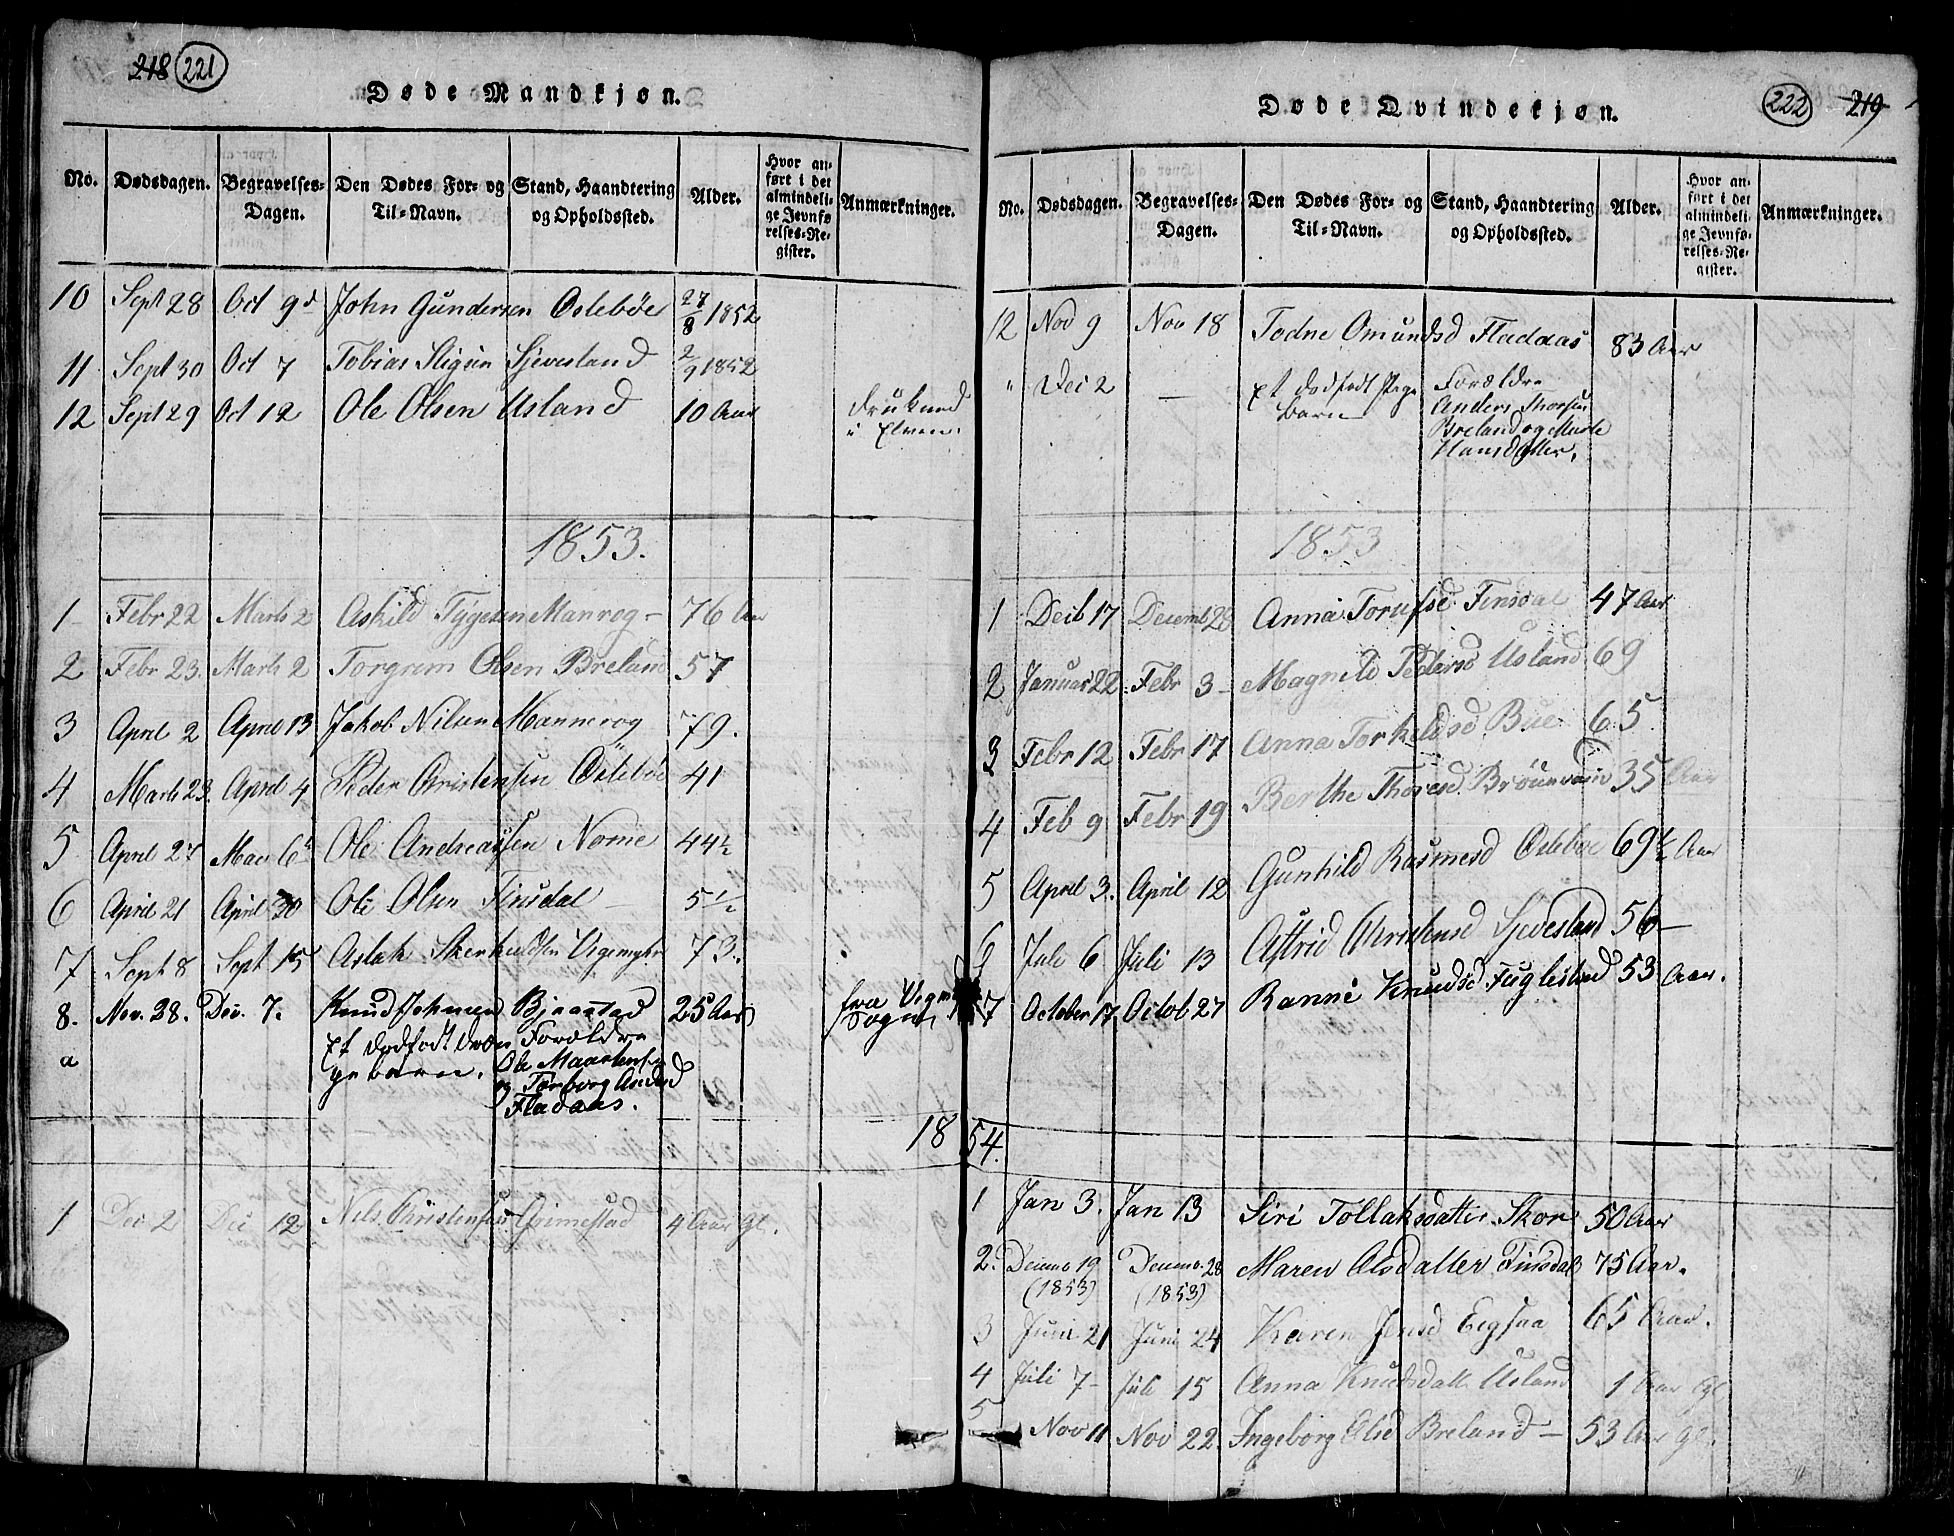 218 221
Døde Mandkjøn.
No. Dødsdagen. Begravelses-Dagen. Den Dødes For- og Til-Navn. Stand, Haandtering og Opholdssted. Alder. Hvor anført i det almindelige Jevnførelses-Register. Anmærkninger.
10 Sept 28 Oct 9d John Gundersen Osleböe 27/8 1852
11 Sept 30 Oct 7 Tobias Sjevesland 2/9 1852
12 Sept 29 Oct 12 Ole Olsen Usland 10 Aar drukned
i Elven.
1853.
1 Febr 22 Marts 2 Askild Mannrog - 76 Aar
2 Febr 23. Marts 2 Torgrim Olsen Breland 57
3 April 2 April 13 Jakob Nilsen Mannerog 79.
4 Marts 23. April 4 Peder Christensen Ösleböe 41
5 April 27 Mai 6 Ole Andreassen Nome 44½
6 April 21 April 30 Ole Olsen Finsdal 5½
7 Sept 8 Sept 15 Aslak Vigemyhr 73.
8. Nov. 28. Dec. 7. Knud Johnsen Bjaastad 25 Aar fra
Sogn
a Et dødfødt dren- Forældre
gebarn. Ole
og Torborg
Fladaas.
18
1 Dec 2 Dec 12 Nils Christensen Grimestad 4 Aar gl.
222 219
Døde Qvindekjøn.
No. Dødsdagen. Begravelses-Dagen. Den Dødes For- og Til-Navn. Stand, Haandtering og Opholdssted. Alder. Hvor anført i det almindelige Jevnførelses-Register. Anmærkninger.
12 Nov 9 Nov 18 Todne Omundsd Fladaas 83 Aar
" Dec 2 — Et dødfødt Pige Forældre
barn Anders Thorsen
Breland og
Hansdatter.
1853
1 Decb 17 Decemb 28 Anna Finsdal 47 Aar
2 Januar 22 Febr 3 - Magnild Pedersd Usland 69
3 Febr 12 Febr 17 Anna Torkeldsd Bue 65.
4 Feb 9 Febr 19 Berthe Thoresd 35 Aar
5 April 3. April 12 Gunhild Rasmusd Oslebøe 69½ Aar
6 Juli 6 Juli 13 Astrid Christensd Sjevesland 56 —
7 October 17 Octob 27 Ranné Knudsd Fuglestad 53 Aar.
54.
1 Jan 3. Jan 13 Siri Tollaksdatter Skore 50 Aar
2. Decemb 19 Decemb. 28 Maren Alsdatter Finsdal 75 Aar.
(1853) (1853)
3 Juni 21 Juni 24 Karen Jensd Eegsaa 65 Aar.
4 Juli 7 - Juli 15 Anna Knudsdatt. Usland 1 Aar gl
5 Nov 11 Nov 22 Ingeborg Olsd Breland — 53 Aar gl.